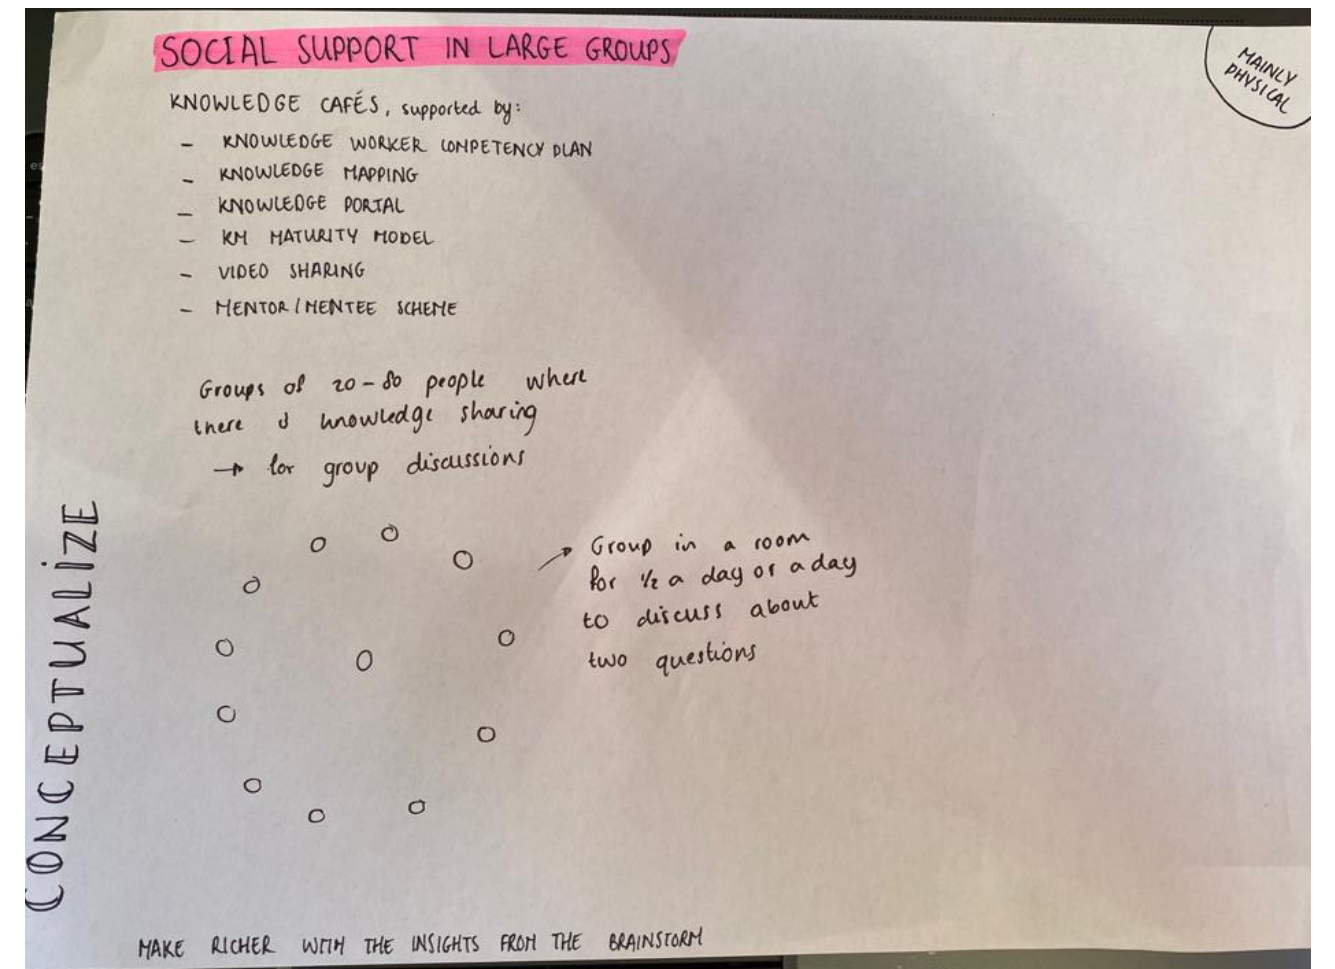 SOCIAL SUPPORT IN LARGE GROUPS
MAINLY
PHYSICAL
KNOWLEDGE CAFÉS, supported by:
- KNOWLEDGE WORKER COMPETENCY PLAN
- KNOWLEDGE MAPPING
- KNOWLEDGE PORTAL
- KM MATURITY MODEL
- VIDEO SHARING
- MENTOR/MENTEE SCHEME
Groups of 20-80 people where
there is knowledge sharing
→ for group discussions
Group in a room
for 1/2 a day or a day
to discuss about
two questions
CONCEPTUALIZE
MAKE RICHER WITH THE INSIGHTS FROM THE BRAINSTORM